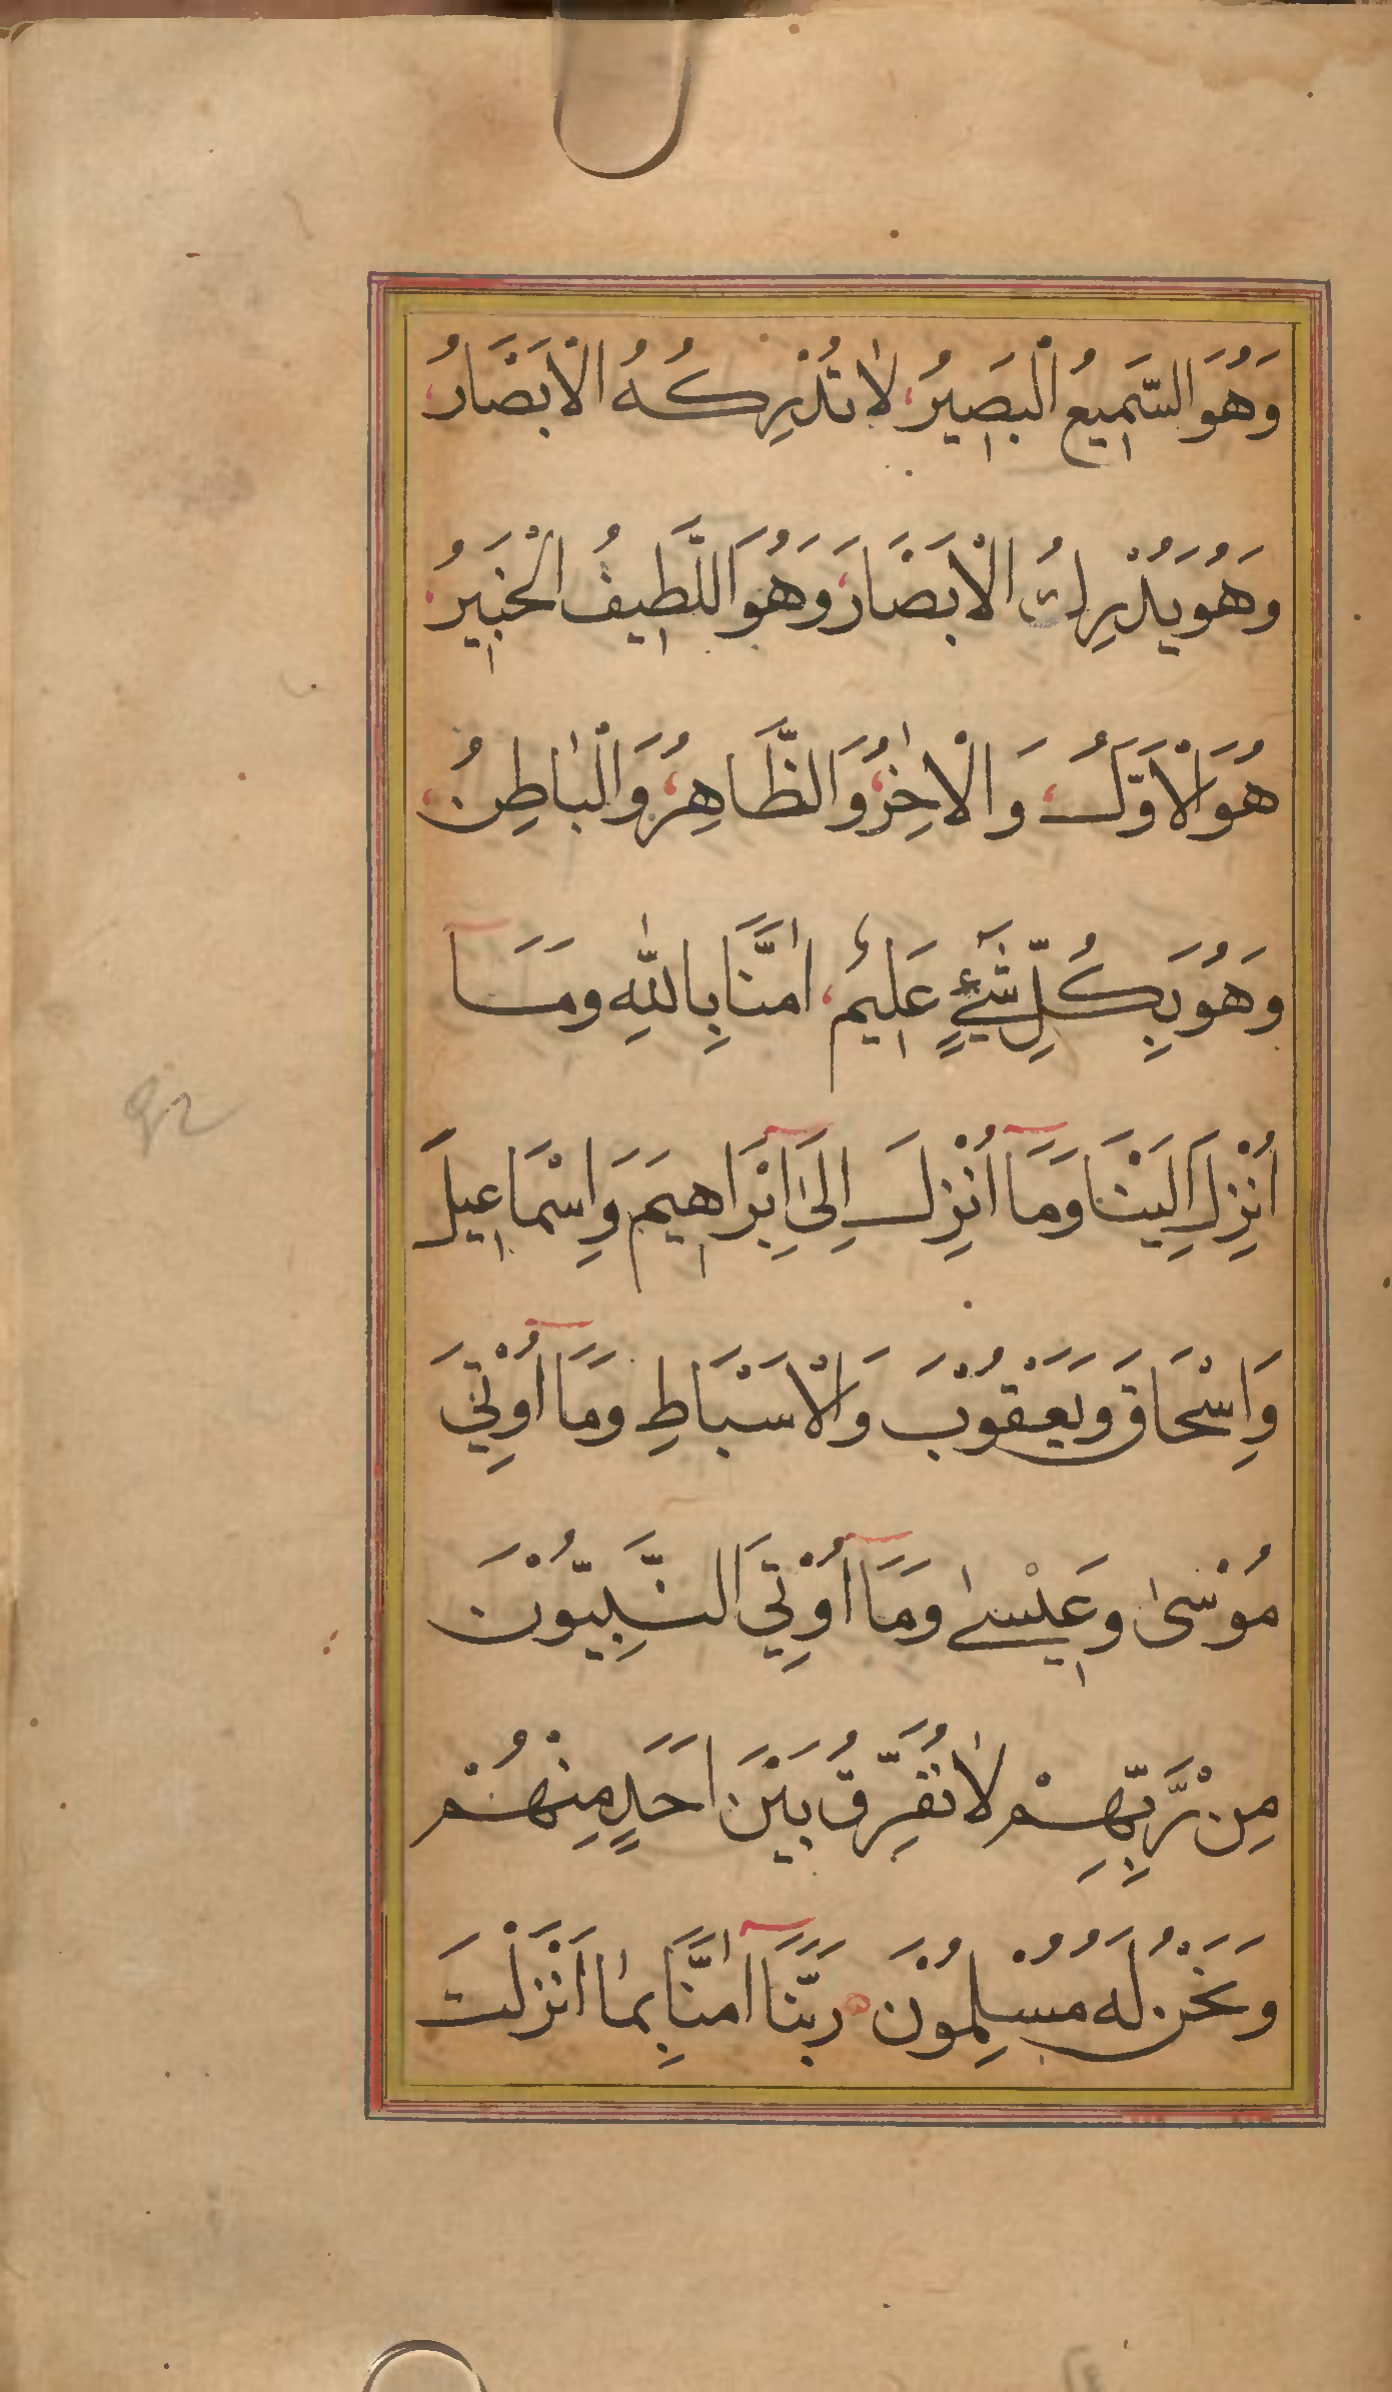 وَهُوَ السَّمِيعُ الْبَصِيرُ لَا تُدْرِكُهُ الْاَبَصَارُ
وَهُوَ يُدْرِكُ الْاَبَصَارَ وَهُوَ اللَّطِيفُ الْخَبَيرُ
هُوَ الْاَوَّلُ وَالْاٰخِرُ وَالظَّاهِرُ وَالْبَاطِنُ
وَهُوَ بِكُلِّ شَيْءٍ عَلِيمٌ اٰمَنَّا بِاللّٰهِ وَمَآ
اُنْزِلَ اِلَيْنَا وَمَآ اُنْزِلَ اِلٰىٓ اِبْرَاهِيمَ وَاِسْمَاعِيلَ
وَاِسْحَاقَ وَيَعْقُوْبَ وَالْاَسْبَاطِ وَمَآ اُوْتِيَ
مُوْسٰى وَعِيْسٰى وَمَآ اُوْتِيَ النَّبِيّوُنْ
مِنْ رَّبِّهِمْ لَا نُفَرِّقُ بَيْنَ اَحَدٍ مِنْهُمْ
وَنَحْنُ لَهُ مُسْلِمُوْنَ رَبَّنَآ اٰمَنَّا بِمَا اَنْزَلْتَ
92